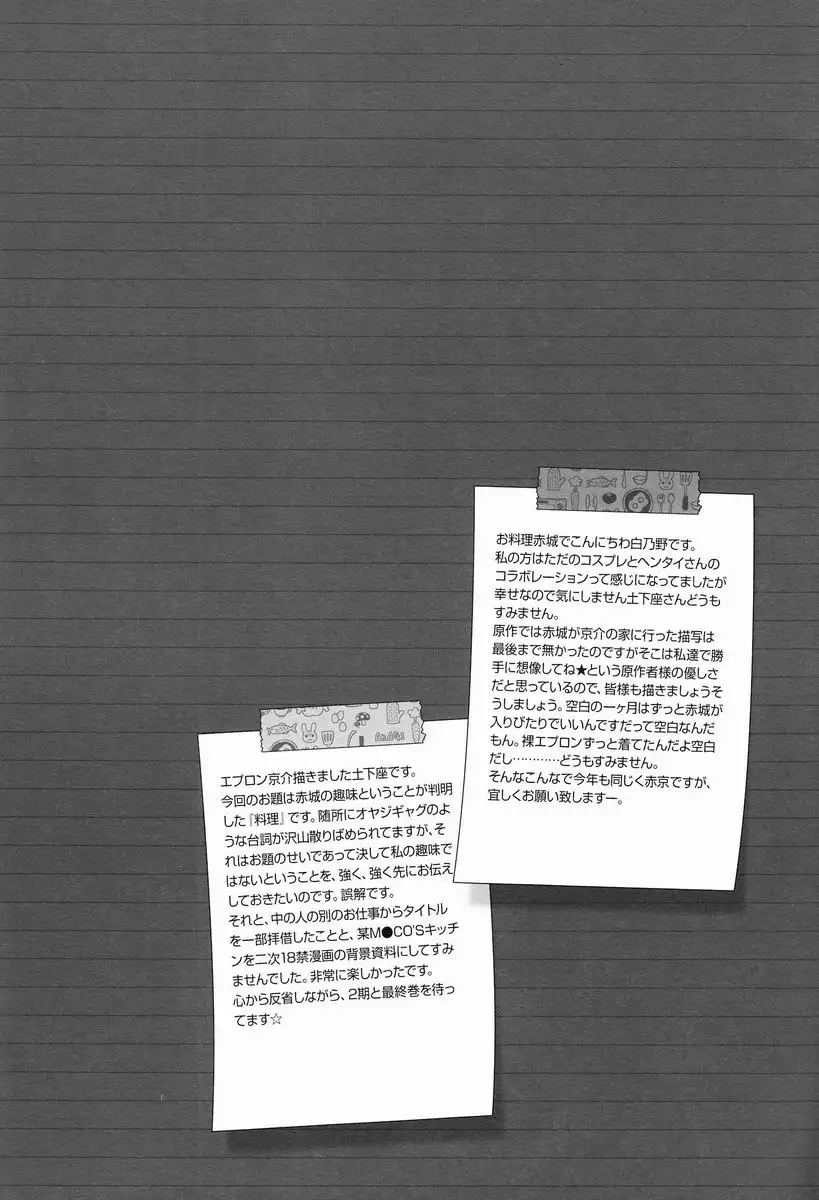 お料理赤城でこんにちわ白乃野です。
私の方はただのコスプレとヘンタイさんの
コラボレーションって感じになってましたが
幸せなので気にしません土下座さんどうも
すみません。
原作では赤城が京介の家に行った描写は
最後まで無かったのですがそこは私達で勝
手に想像してね★という原作者様の優しさ
だと思っているので、皆様も描きましょうそ
うしましょう。空白の一ヶ月はずっと赤城が
入りびたりでいいんですだって空白なんだ
もん。裸エプロンずっと着てたんだよ空白
だし…………どうもすみません。
そんなこんなで今年も同じく赤京ですが、
宜しくお願い致しますー。
AKAGI
エプロン京介描きました土下座です。
今回のお題は赤城の趣味ということが判明
した『料理』です。随所にオヤジギャグのよ
うな台詞が沢山散りばめられてますが、そ
れはお題のせいであって決して私の趣味で
はないということを、強く、強く先にお伝え
しておきたいのです。誤解です。
それと、中の人の別のお仕事からタイトル
を一部拝借したことと、某M●CO'Sキッチ
ンを二次18禁漫画の背景資料にしてすみ
ませんでした。非常に楽しかったです。
心から反省しながら、2期と最終巻を待っ
てます☆